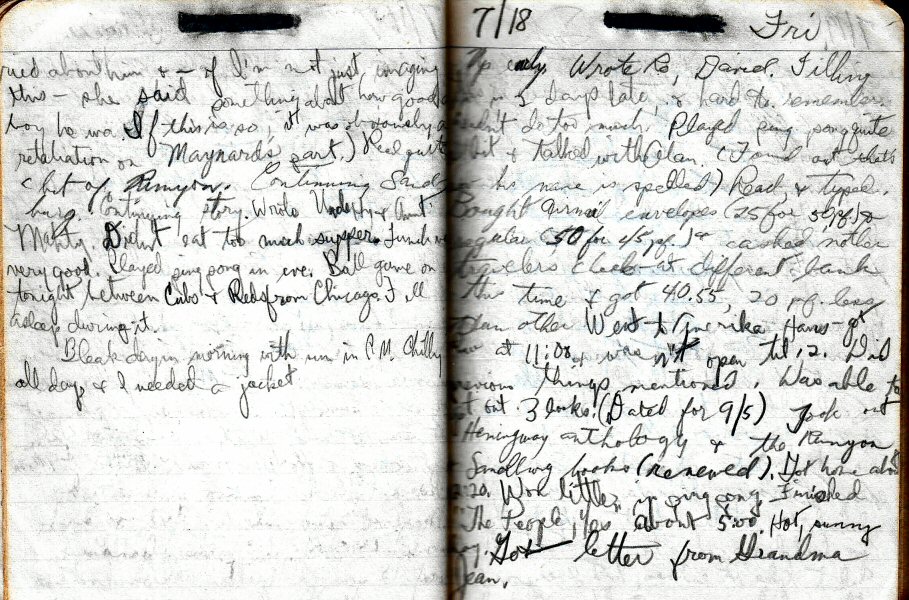 about him & - if I'm not just imaging
this - she said something about how good a
boy he was. If this is so, it was obviously a
retaliation on Maynard's part.) Read quite
a bit of Runyon. Continuing Sand-
burg. Continuing story. Wrote & Aunt
Didn't eat too much supper. Lunch
very good. Played ping pong in eve. Ball game on
tonight between Cubs & Reds from Chicago. Fell
asleep during it.
Bleak day in morning with sun in P.M. Chilly
all day & I needed a jacket
7/18 Fri
Up early. Wrote Ro, David. Filling
in 2 days late, & hard to remember.
Didn't do too much. Played ping pong quite
bit & talked with Alan. (Found out that's
how his name is spelled) Read & typed.
Bought airmail envelopes (25 for 50 pf.) &
regular (50 for 45 pf.) & cashed another
travelers check at different bank
this time & got 40.55, 20 pf. less
than other. Went to Amerika Haus - got
at 11:00 & was n't open til 12. Did
previous things mentioned. Was able to
get out 3 books. (Dated for 9/5) Took out
Hemingway anthology & the Runyon
& Sandburg books (renewed). Got home about
2:20. Won little in ping pong. Finished
The People, Yes about 5:00. Hot, sunny
day. Got letter from Grandma
Jean.